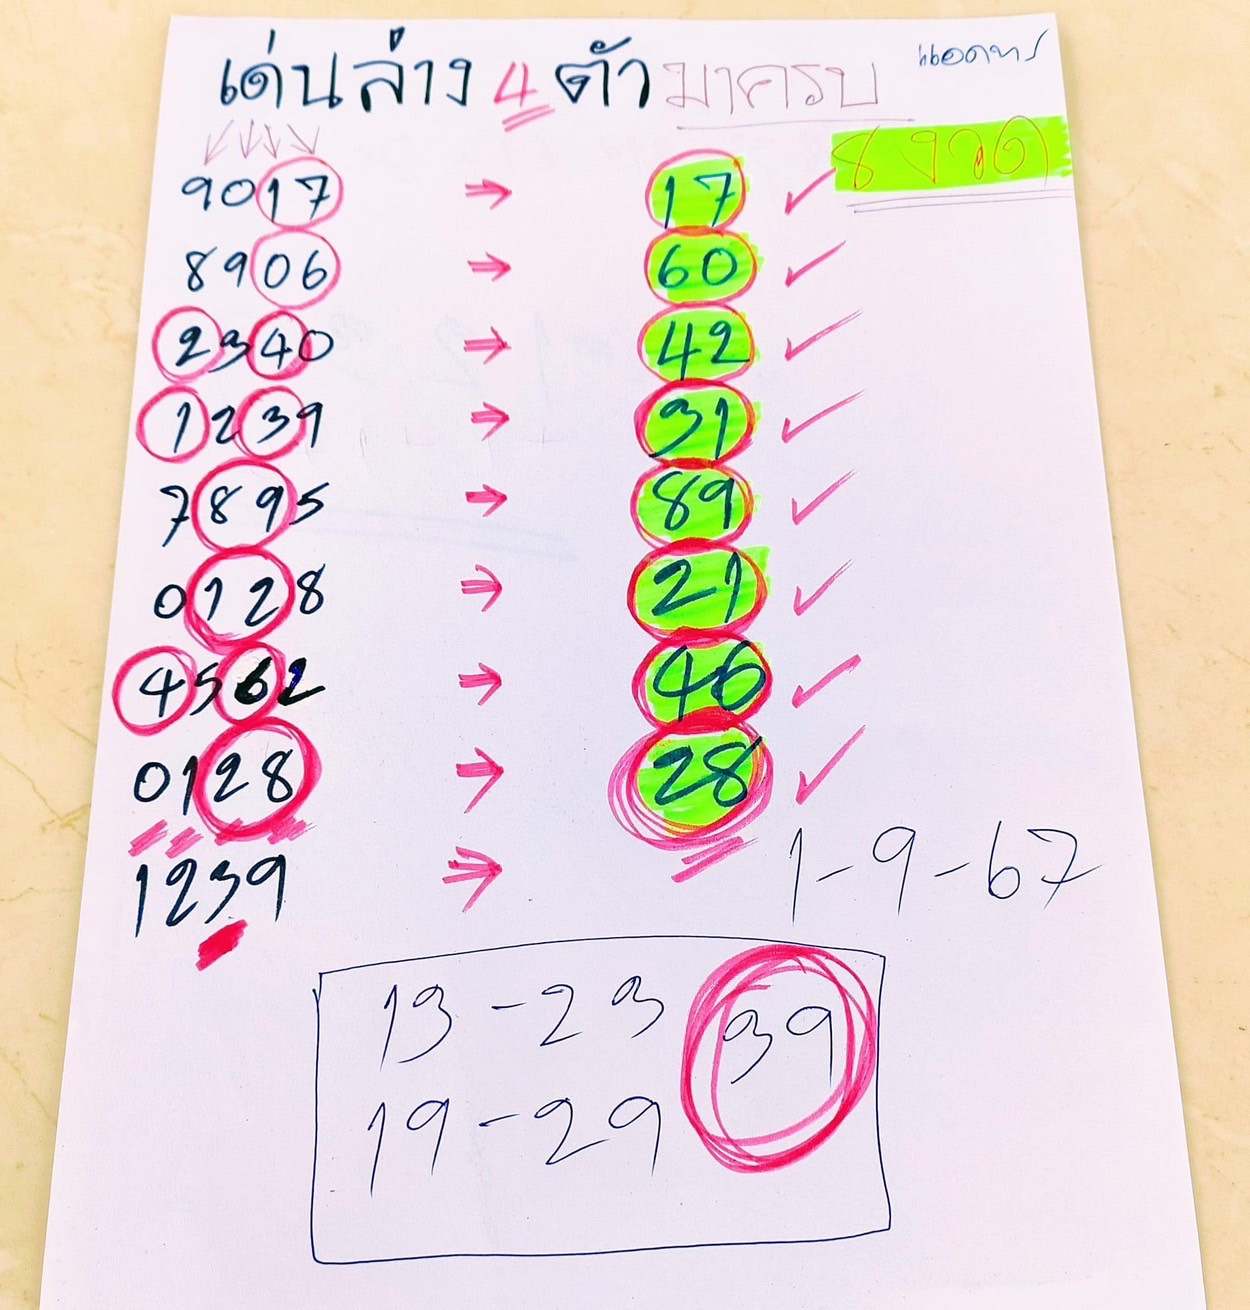 เด่นล่าง 4 ตัว มาครบ
8 งวด
9017 → 17 ✓
8906 → 60 ✓
2340 → 42 ✓
1239 → 31 ✓
7895 → 89 ✓
0128 → 21 ✓
4562 → 46 ✓
0128 → 28 ✓
1239 → 1-9-67
13-23 39
19-29